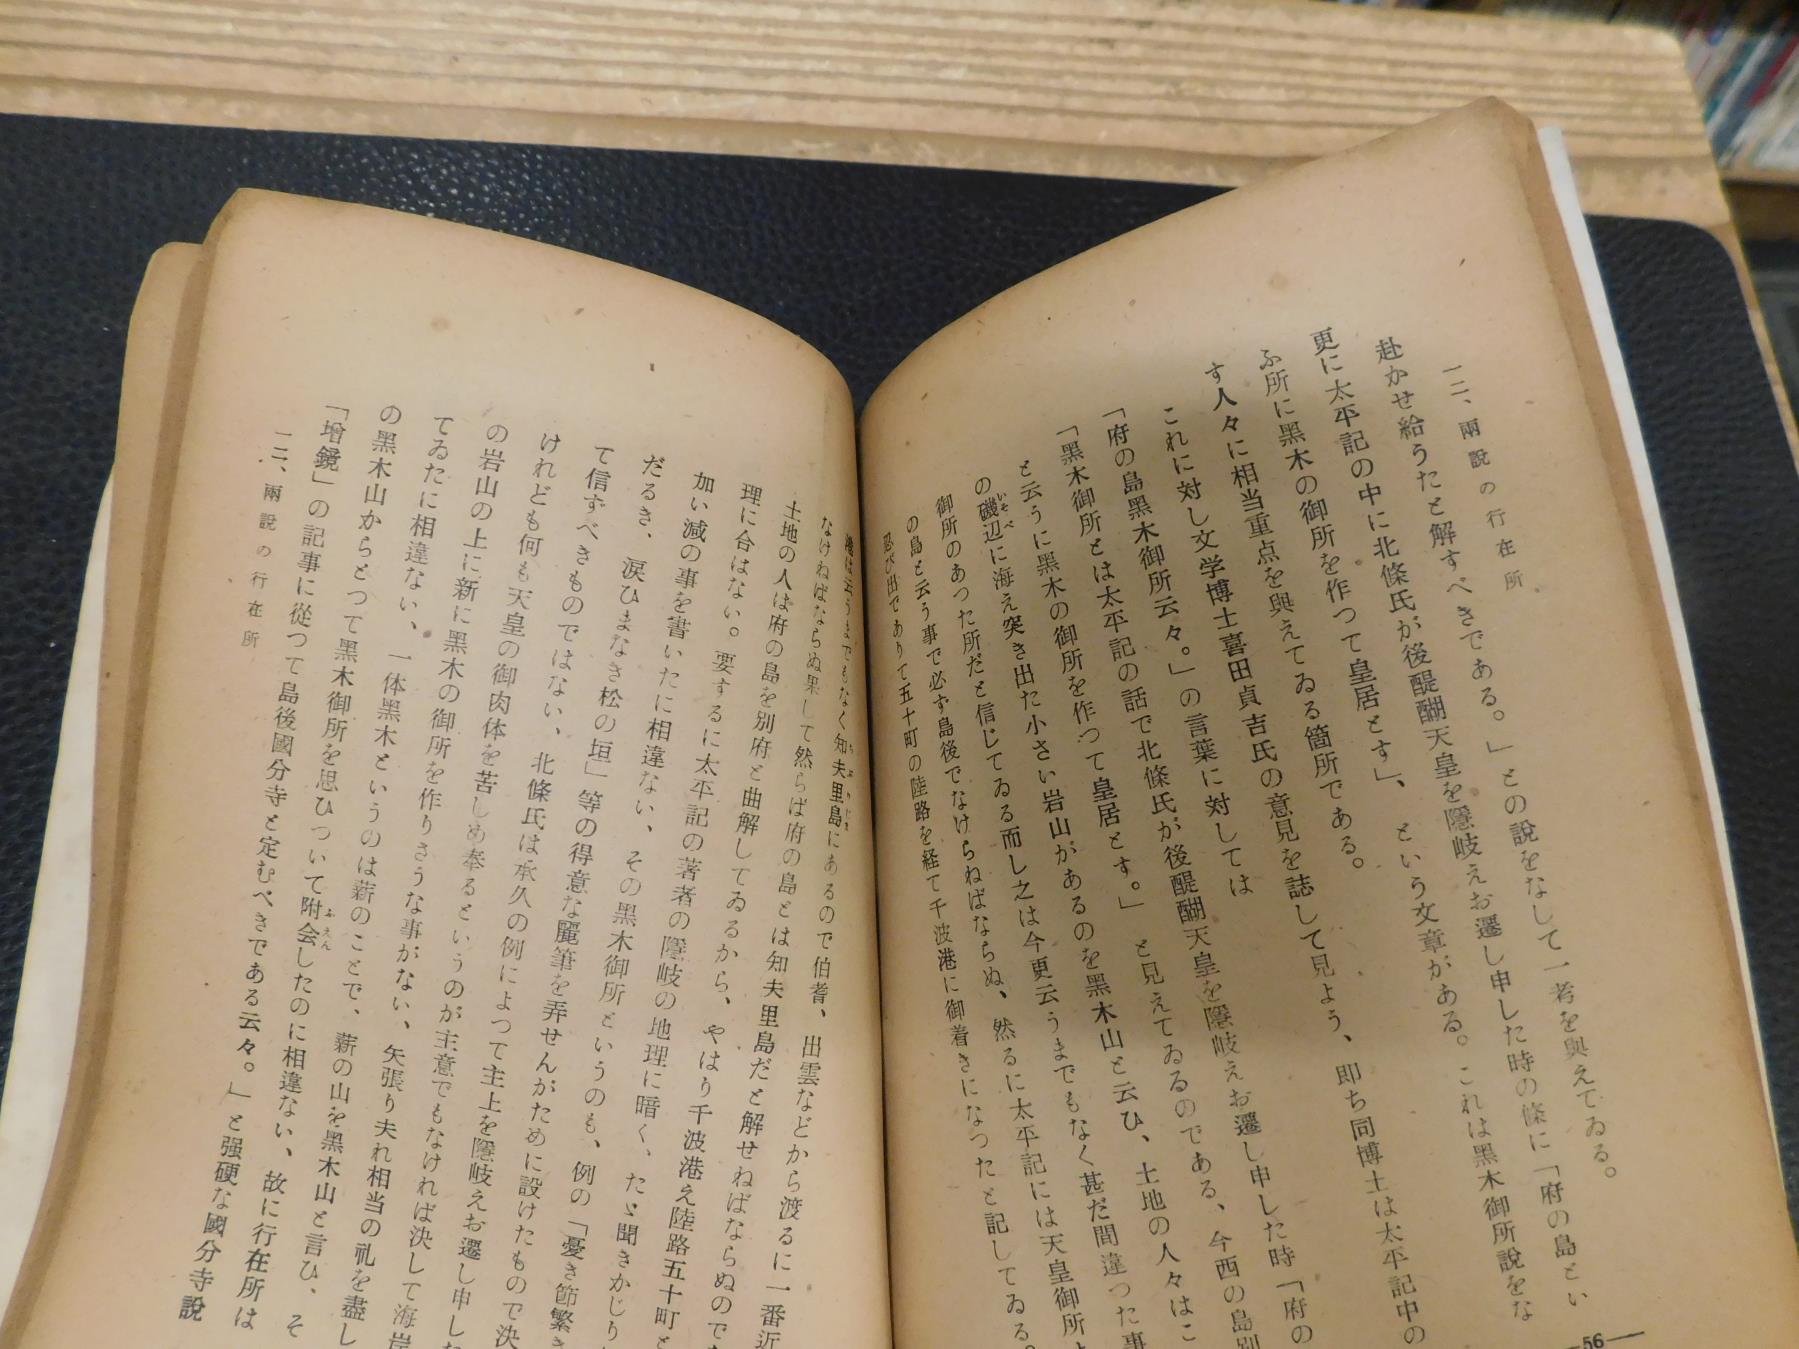 一二、兩說の行在所
赴かせ給うたと解すべきである。」との說をなして一考を與えてゐる。
更に太平記の中に北條氏が後醍醐天皇を隱岐えお遷し申した時の條に「府の島とい
ふ所に黑木の御所を作つて皇居とす」、という文章がある。これは黑木御所說をな
す人々に相当重点を與えてゐる箇所である。
これに対し文学博士喜田貞吉氏の意見を誌して見よう、即ち同博士は太平記中の
「府の島黑木御所云々。」の言葉に対しては
「黑木御所とは太平記の話で北條氏が後醍醐天皇を隱岐えお遷し申した時「府の
と云うに黑木の御所を作つて皇居とす。」と見えてゐるのである、今西の島別
の磯辺に海え突き出た小さい岩山があるのを黑木山と云ひ、土地の人々はこ
いそべ
御所のあつた所だと信じてゐる而し之は今更云うまでもなく甚だ間違つた事
の島と云う事で必ず島後でなけらねばならぬ、然るに太平記には天皇御所
忍び出でありて五十町の陸路を経て千波港に御着きになつたと記してゐる。
56
は云うまでもなく知夫里島にあるので伯耆、出雲などから渡るに一番近
ちぶりじま
なけねばならぬ果して然らば府の島とは知夫里島だと解せねばならぬので
土地の人は府の島を別府と曲解してゐるから、やはり千波港え陸路五十町と
理に合はない。要するに太平記の著者の隱岐の地理に暗く、たゞ聞きかじり
加い減の事を書いたに相違ない、その黑木御所というのも、例の「憂き節繁き
だるき、淚ひまなき松の垣」等の得意な麗筆を弄せんがために設けたもので決
て信ずべきものではない、北條氏は承久の例によつて主上を隱岐えお遷し申した
けれども何も天皇の御肉体を苦しめ奉るというのが主意でもなければ決して海岸
の岩山の上に新に黑木の御所を作りさうな事がない、矢張り夫れ相当の礼を盡し
てゐたに相違ない、一体黑木というのは薪のことで、薪の山を黑木山と言ひ、そ
の黑木山からとつて黑木御所を思ひついて附会したのに相違ない、故に行在所は
ふえん
「增鏡」の記事に從つて島後國分寺と定むべきである云々。」と强硬な國分寺說
一二、兩說の行在所